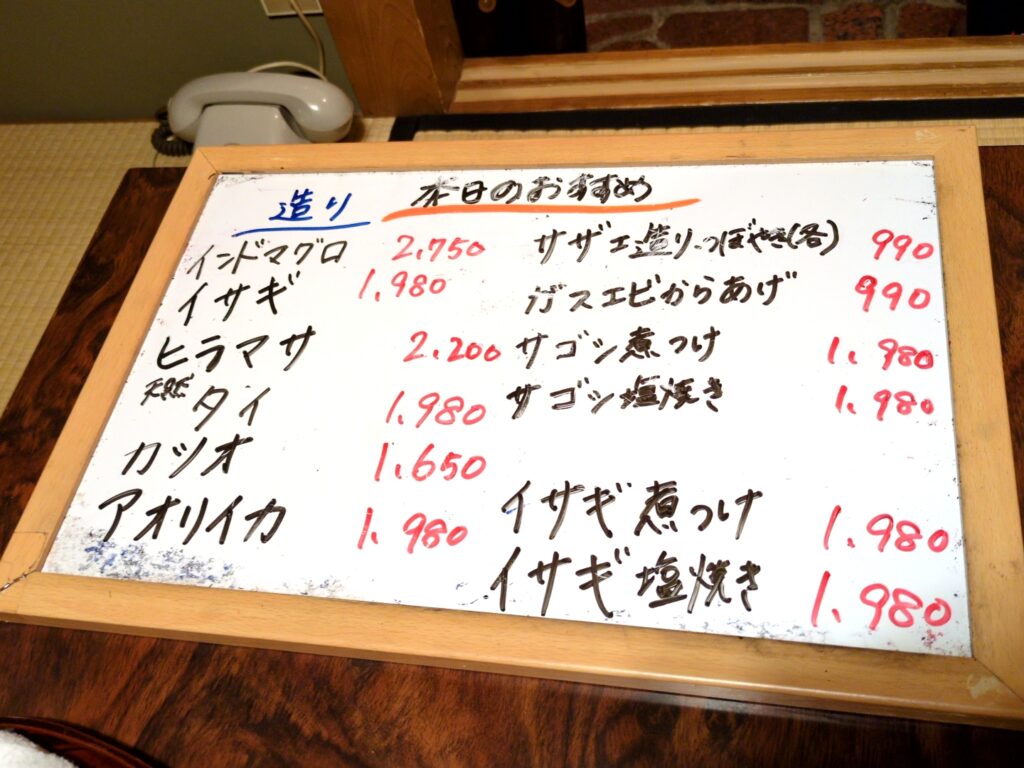 本日のおすすめ
造り
インドマグロ 2,750
イサギ 1,980
ヒラマサ 2,200
天然タイ 1,980
カツオ 1,650
アオリイカ 1,980
サザエ造り、つぼやき(各) 990
ガスエビからあげ 990
サゴシ煮つけ 1,980
サゴシ塩焼き 1,980
イサギ煮つけ 1,980
イサギ塩焼き 1,980